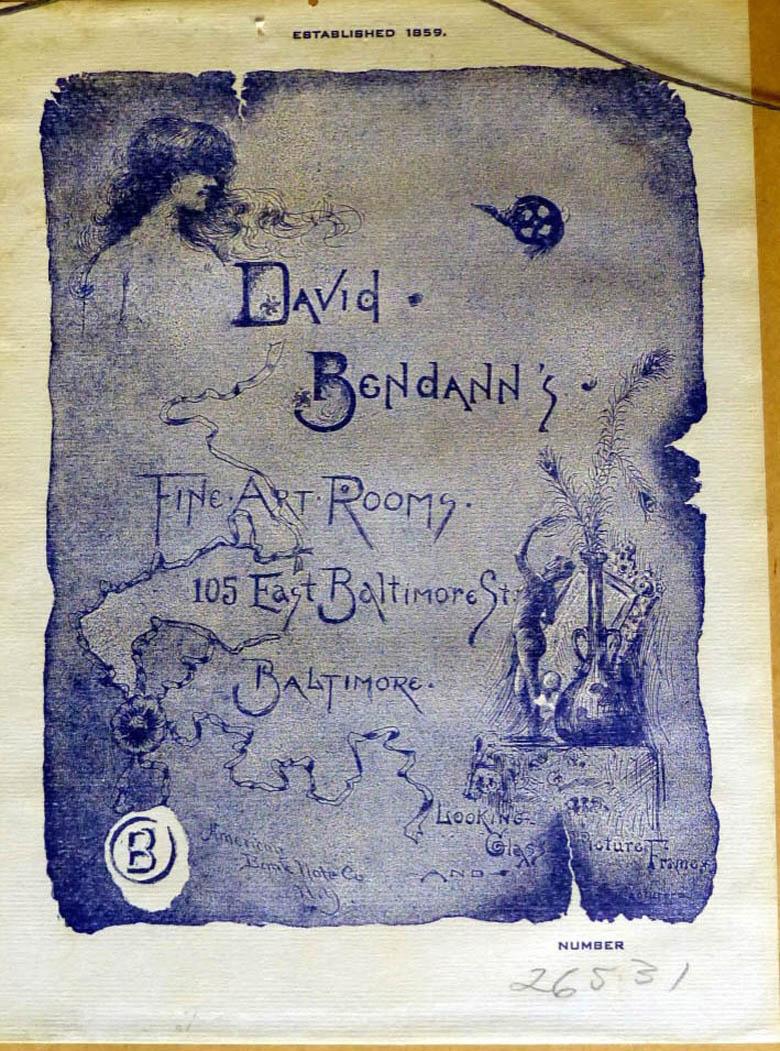 ESTABLISHED 1859.
DAVID
BENDANN'S
FINE·ART·ROOMS.
105 EAST BALTIMORE ST.
BALTIMORE.
LOOKING-
GLASS
AND
PICTURE FRAMES
B
American
Bank Note Co
N.Y.
NUMBER
26531